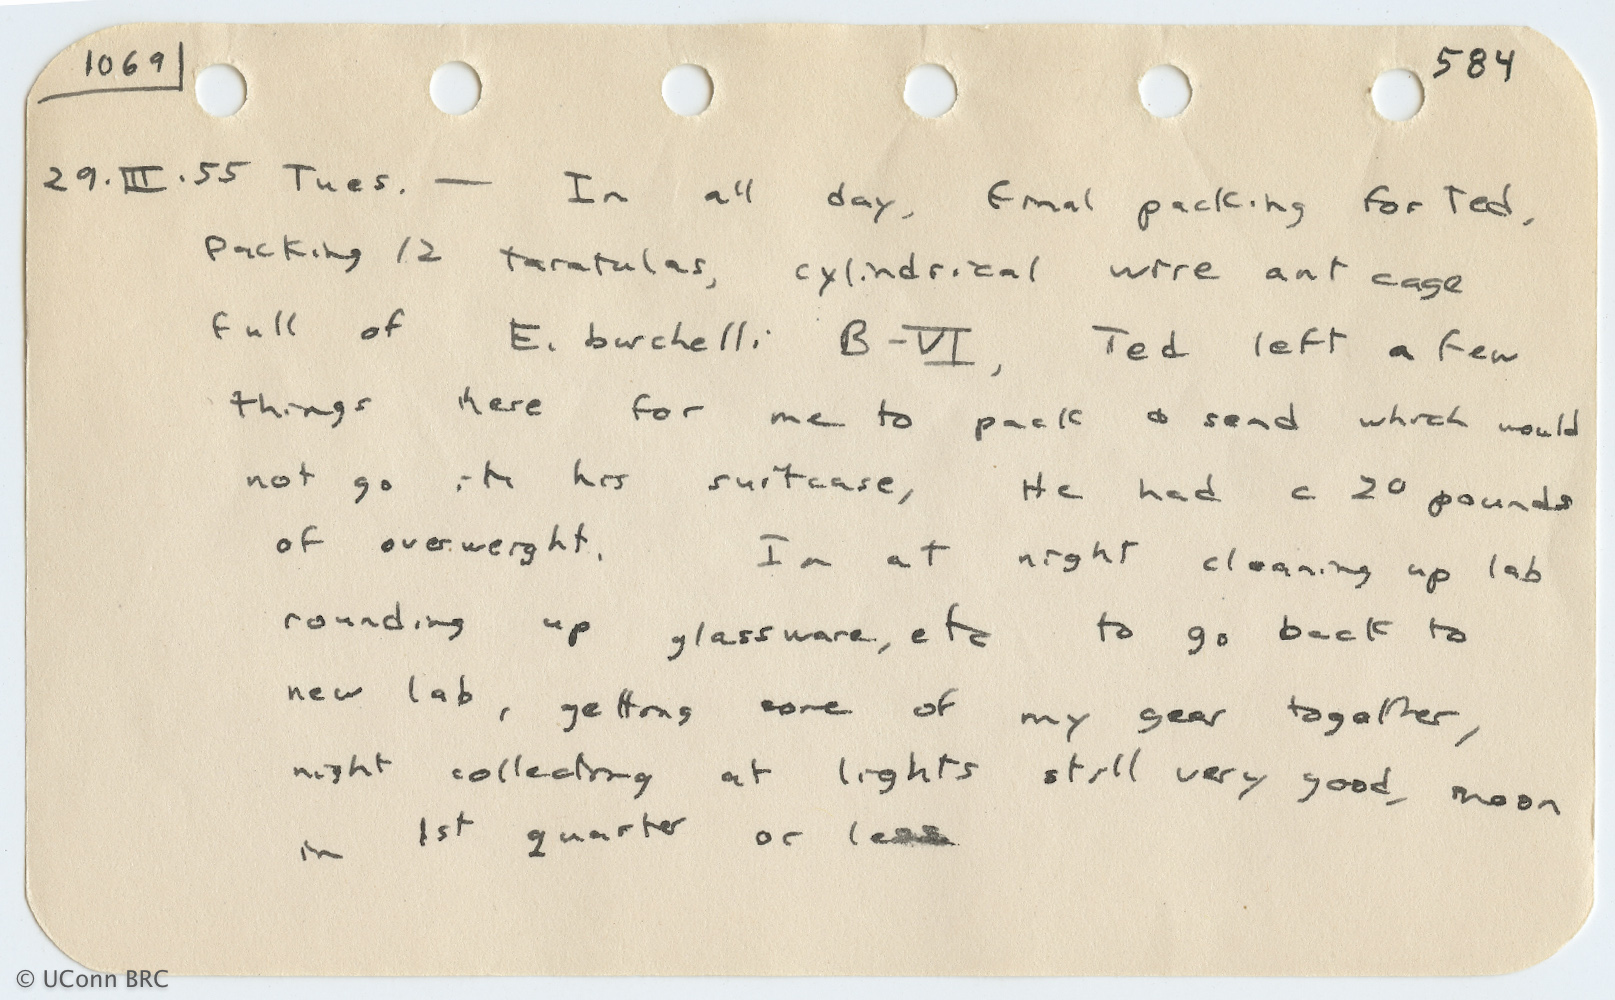 1069 584
29.III.55 Tues. — In all day, final packing for Ted,
packing 12 taratulas, cylindrical wire ant cage
full of E. burchelli B-VI, Ted left a few
things here for me to pack & send which would
not go in his suitcase, He had c 20 pounds
of overweight. In at night cleaning up lab
rounding up glassware, etc to go back to
new lab, getting some of my gear together,
night collecting at lights still very good, moon
in 1st quarter or less
© UConn BRC